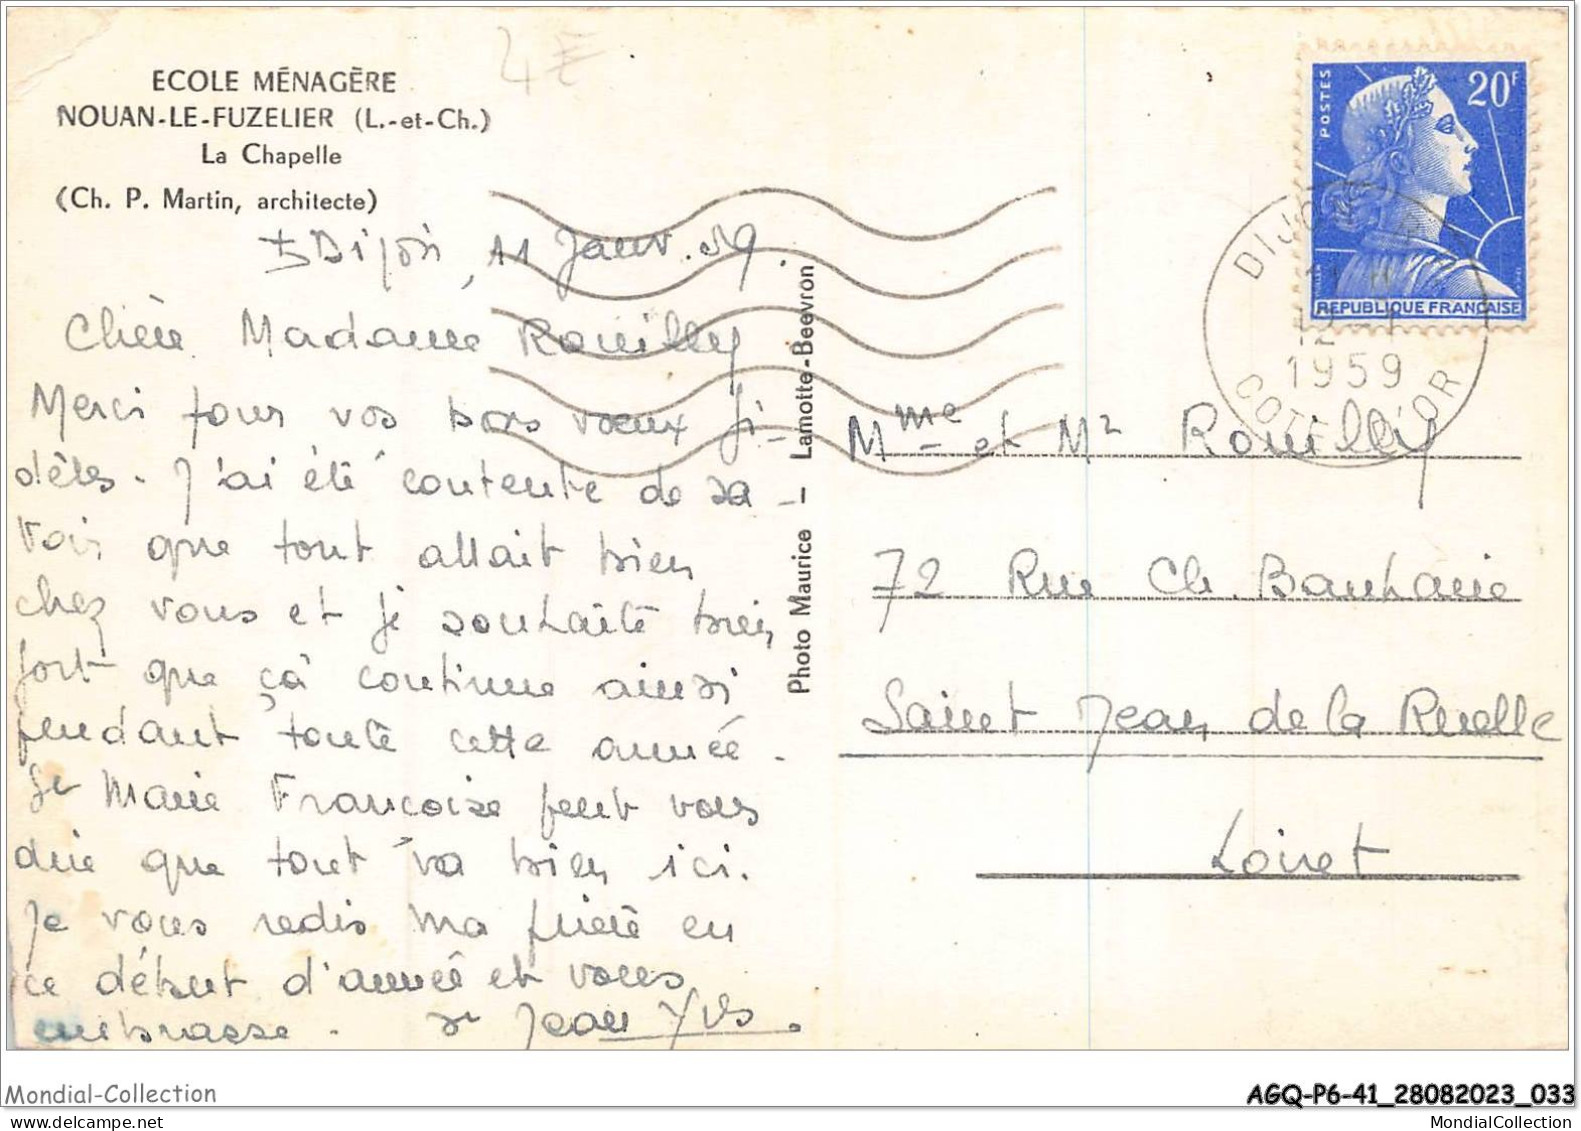 4 E
ECOLE MÉNAGÈRE
NOUAN-LE-FUZELIER (L.-et-Ch.)
La Chapelle
(Ch. P. Martin, architecte)
Dijon, 11 Janv. 59.
Chère Madame Rouilly
Merci pour vos bons voeux fi-
dèles. J'ai été contente de sa-
voir que tout allait bien
chez vous et je souhaite bien
fort que çà continue ainsi
pendant toute cette année.
Sr Marie Françoise peut vous
dire que tout va bien ici.
Je vous redis ma prière en
ce début d'année et vous
embrasse. Sr Jean Yves.
Photo Maurice - Lamotte-Beuvron
POSTES
20F
REPUBLIQUE FRANÇAISE
DIJON
12 - 1
1959
COTE D'OR
Mme et Mr Rouilly
72 Rue Ch. Beauhaire
Saint Jean de la Ruelle
Loiret
Mondial-Collection
AGQ-P6-41_28082023_033
MondialCollection